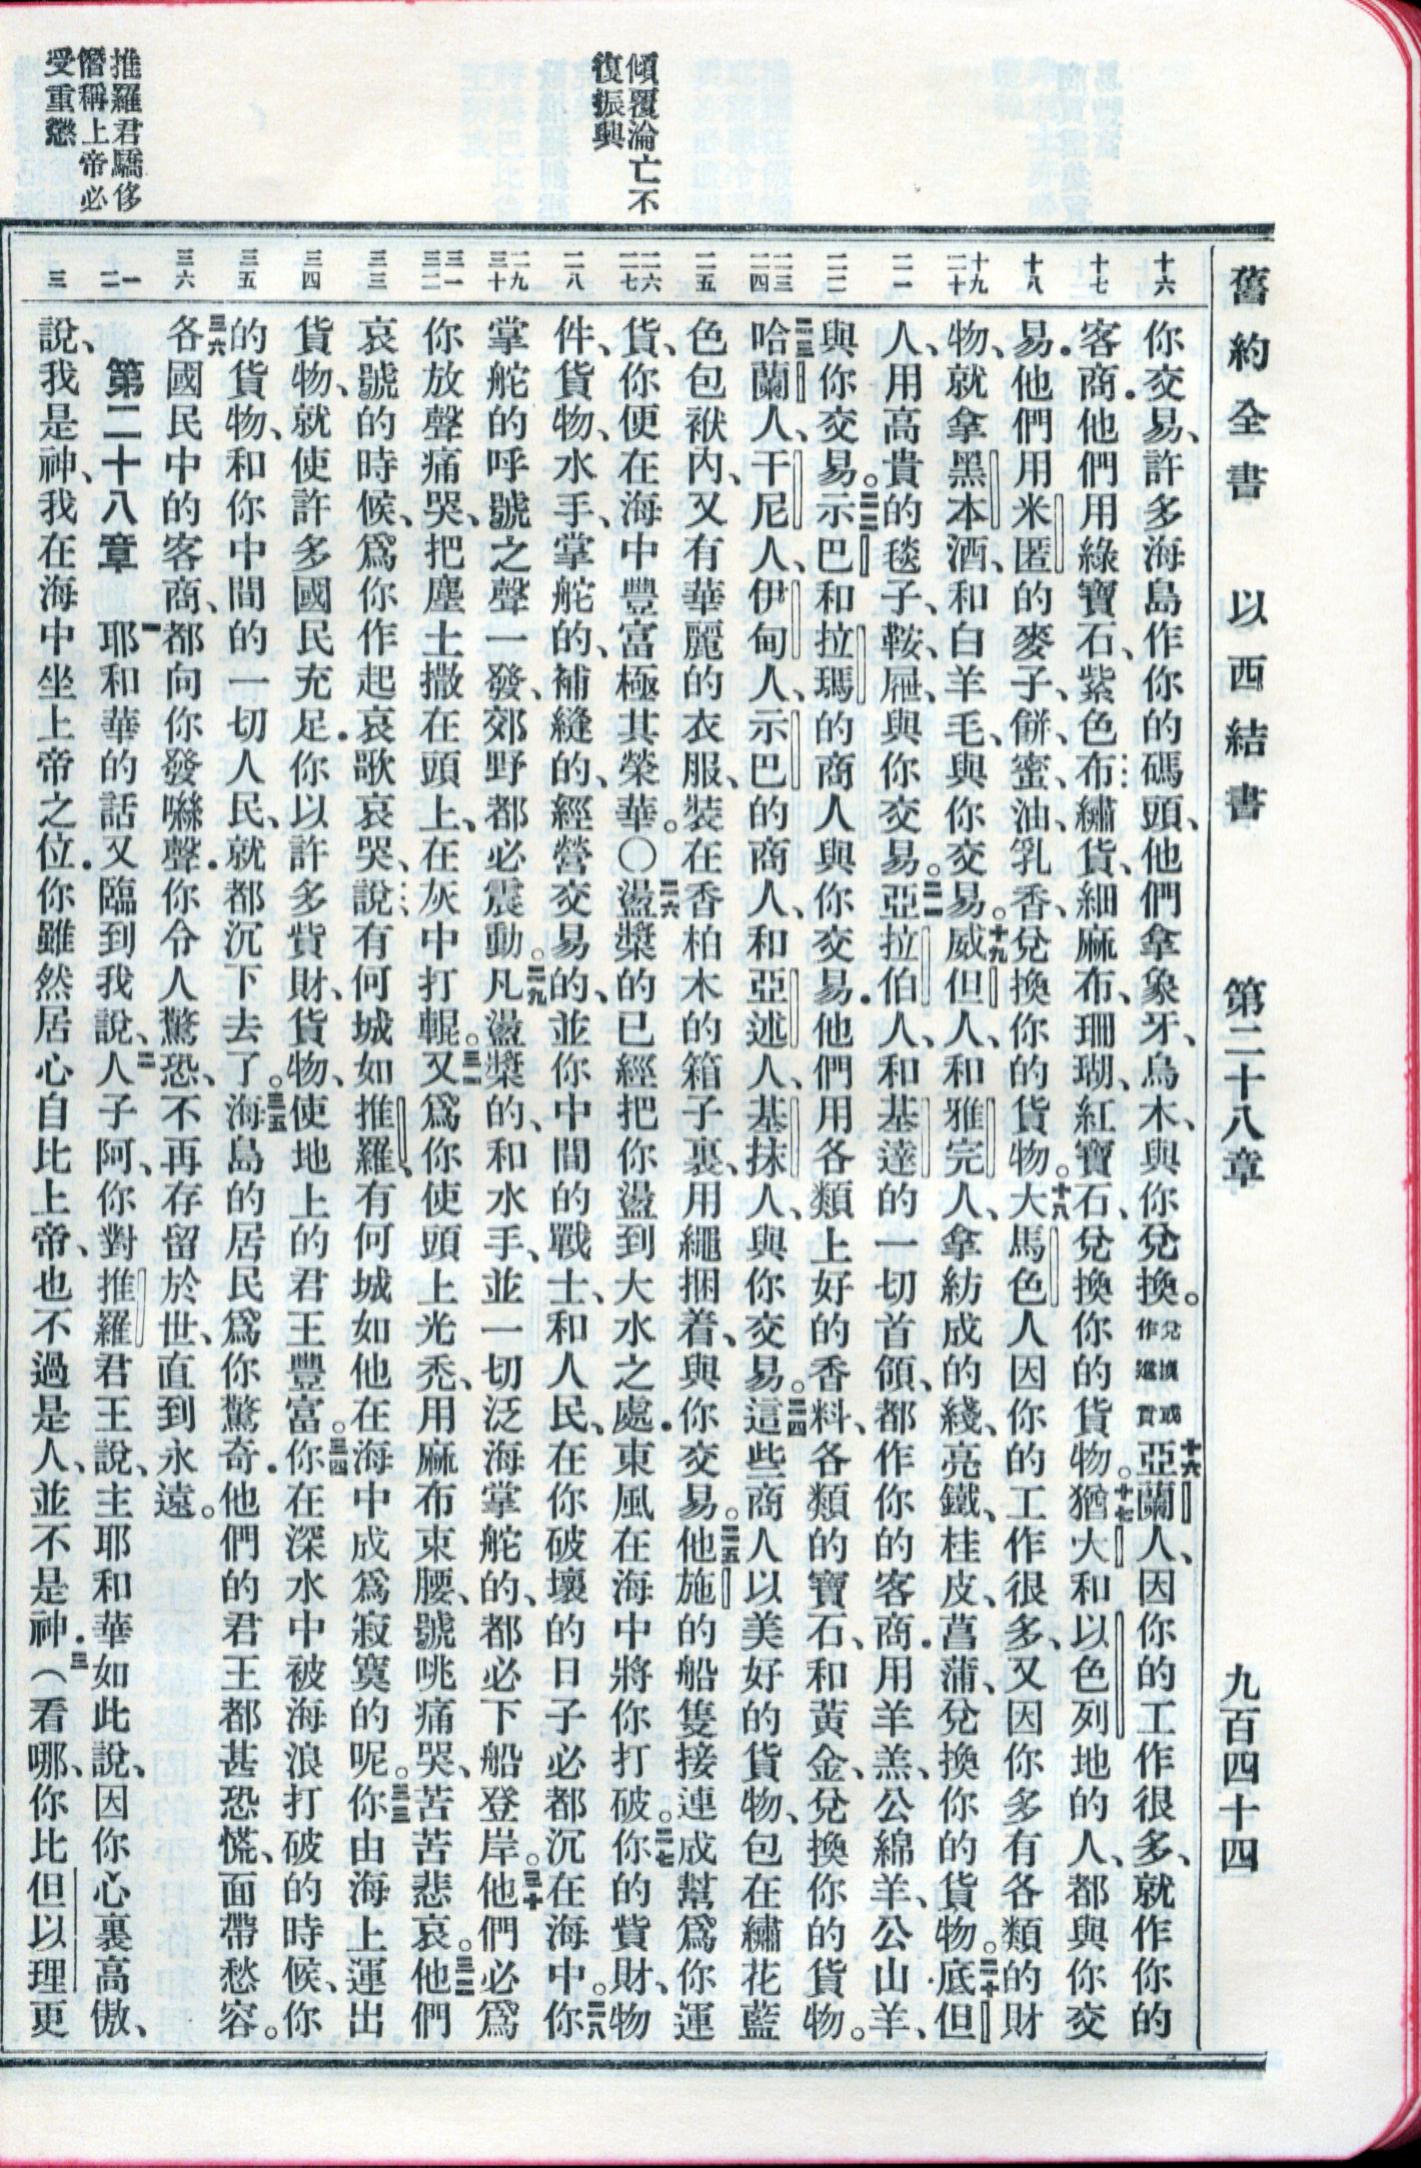 舊約全書 以西結書 第二十八章 九百四十四
傾覆淪亡不
復振興
推羅君驕侈
僭稱上帝必
受重懲
十六
十七
十八
十九
二十
二一
二二
二三
二四
二五
二六
二七
二八
二九
三十
三一
三二
三三
三四
三五
三六
一
二
三
你交易、許多海島作你的碼頭、他們拿象牙、烏木、與你兌換。兌換或作進貢十六亞蘭人、因你的工作很多、就作你的
客商.他們用綠寶石、紫色布繡貨、細麻布、珊瑚、紅寶石、兌換你的貨物。十七猶大和以色列地的人、都與你交
易.他們用米匿的麥子、餅、蜜、油、乳香、兌換你的貨物。十八大馬色人因你的工作很多、又因你多有各類的財
物、就拿黑本酒、和白羊毛、與你交易。十九威但人、和雅完人、拿紡成的綫、亮鐵、桂皮、菖蒲、兌換你的貨物。二十底但
人、用高貴的毯子、鞍、屜、與你交易。二一亞拉伯人、和基達的一切首領、都作你的客商.用羊羔、公綿羊、公山羊、
與你交易。二二示巴和拉瑪的商人與你交易.他們用各類上好的香料、各類的寶石、和黃金、兌換你的貨物。
二三哈蘭人、干尼人、伊甸人、示巴的商人、和亞述人、基抹人、與你交易。二四這些商人以美好的貨物、包在繡花藍
色包袱內、又有華麗的衣服、裝在香柏木的箱子裏、用繩捆着、與你交易。二五他施的船隻接連成幫爲你運
貨、你便在海中豐富極其榮華。○二六盪槳的已經把你盪到大水之處.東風在海中將你打破。二七你的貲財、物
件、貨物、水手、掌舵的、補縫的、經營交易的、並你中間的戰士、和人民、在你破壞的日子必都沉在海中。二八你
掌舵的呼號之聲一發、郊野都必震動。二九凡盪槳的、和水手、並一切泛海掌舵的、都必下船登岸。三十他們必爲
你放聲痛哭、把塵土撒在頭上、在灰中打輥。三一又爲你使頭上光禿、用麻布束腰、號咷痛哭、苦苦悲哀。三二他們
哀號的時候、爲你作起哀歌哀哭、說、有何城如推羅、有何城如他在海中成爲寂寞的呢。三三你由海上運出
貨物、就使許多國民充足.你以許多貲財、貨物、使地上的君王豐富。三四你在深水中被海浪打破的時候、你
的貨物、和你中間的一切人民、就都沉下去了。三五海島的居民爲你驚奇.他們的君王都甚恐慌、面帶愁容。
三六各國民中的客商、都向你發嘶聲.你令人驚恐、不再存留於世、直到永遠。
第二十八章 一耶和華的話又臨到我說、二人子阿、你對推羅君王說、主耶和華如此說、因你心裏高傲、
說、我是神、我在海中坐上帝之位.你雖然居心自比上帝、也不過是人、並不是神.三（看哪、你比但以理更